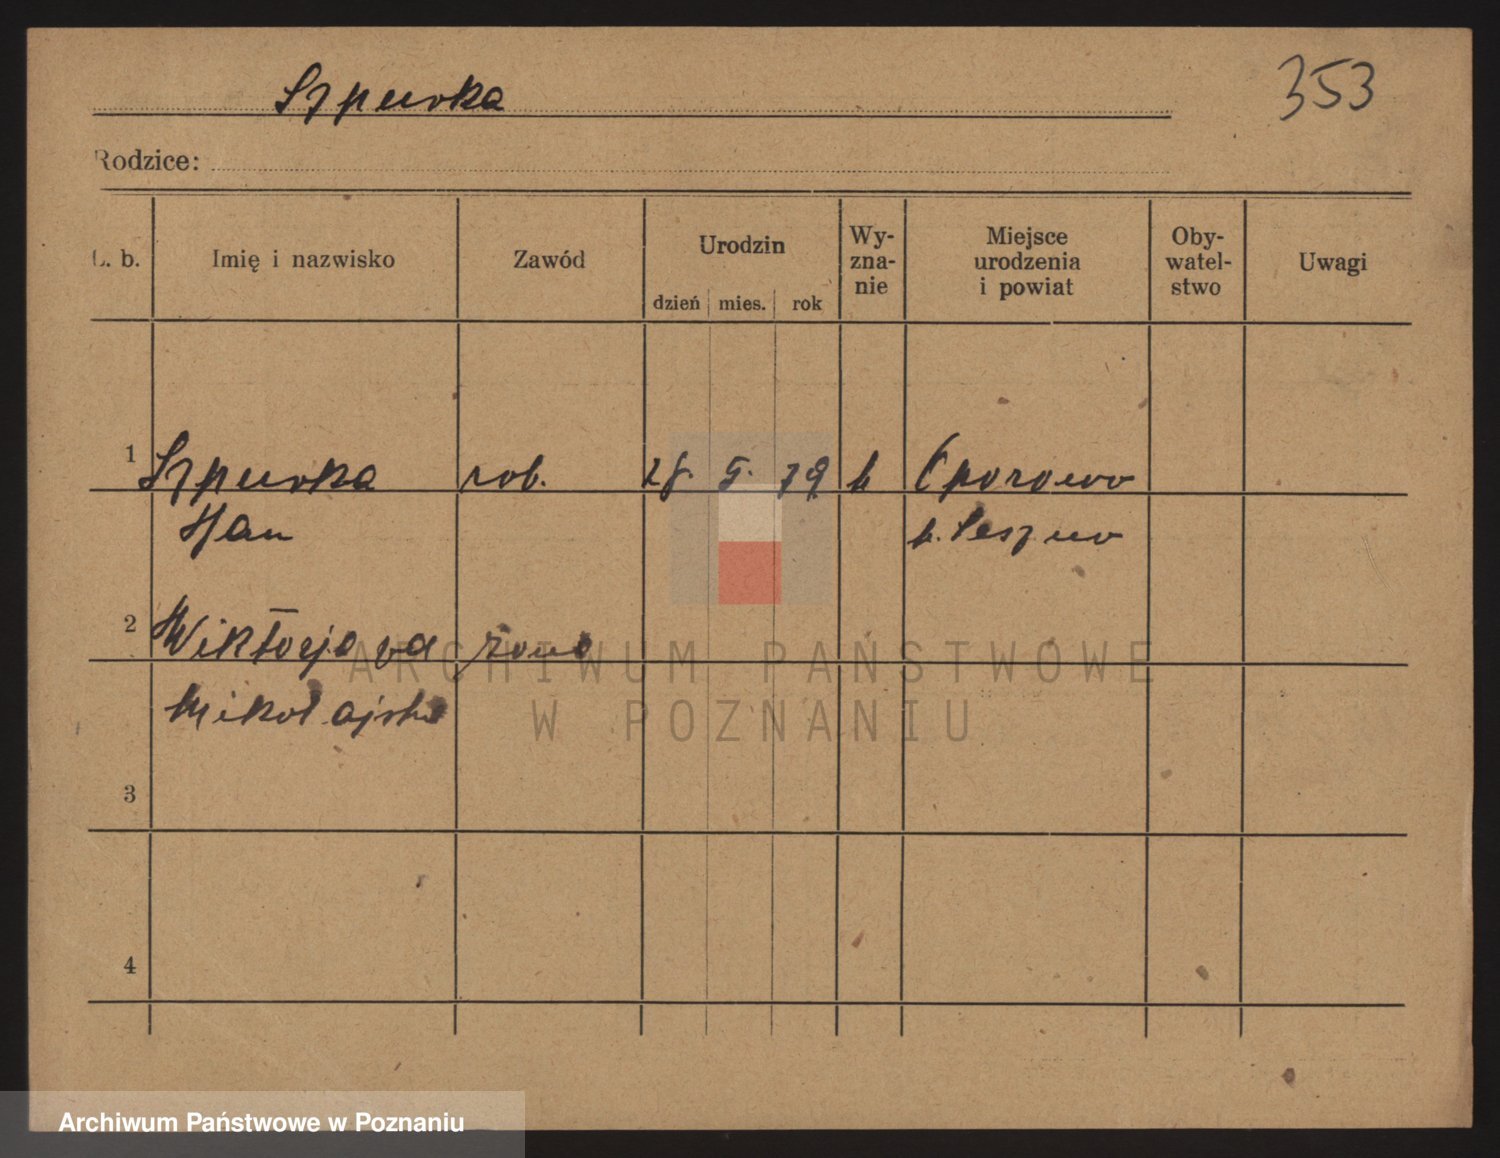 Szpurka
353
Rodzice:
L. b.
Imię i nazwisko
Zawód
Urodzin
dzień mies. rok
Wy-
zna-
nie
Miejsce
urodzenia
i powiat
Oby-
watel-
stwo
Uwagi
1 Szpurka rob. 5. 79 k
Jan p. Leszno
2 Wiktorja żona
Mikołajska
3
4
ARCHIWUM PAŃSTWOWE
W POZNANIU
Archiwum Państwowe w Poznaniu